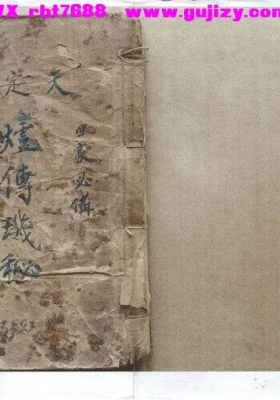 X rbt7688 www.gujizy.com
天
定
爐傳璣秘
日家必備